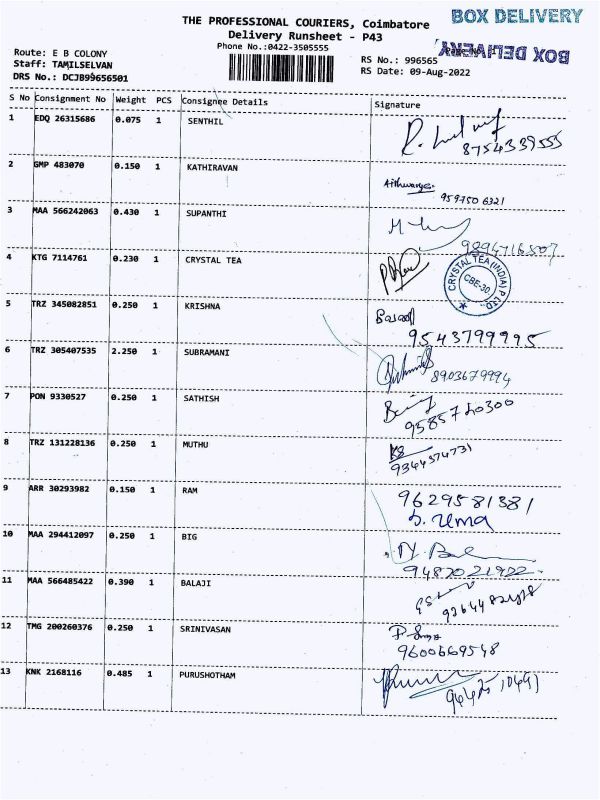 THE PROFESSIONAL COURIERS, Coimbatore
BOX DELIVERY
Delivery Runsheet - P43
Phone No.:0422-3505555
BOX DELIVERY
Route: E B COLONY
Staff: TAMILSELVAN
DRS No.: DCJB99656501
RS No.: 996565
RS Date: 09-Aug-2022
S No Consignment No Weight PCS Consignee Details Signature
1 EDQ 26315686 0.075 1 SENTHIL
8754339555
2 GMP 483070 0.150 1 KATHIRAVAN
9597506321
3 MAA 566242063 0.430 1 SUPANTHI
9894716507
4 KTG 7114761 0.230 1 CRYSTAL TEA
CRYSTAL TEA (INDIA) P LTD.
CBE-30
5 TRZ 345082851 0.250 1 KRISHNA
9543799995
6 TRZ 305407535 2.250 1 SUBRAMANI
8903679994
7 PON 9330527 0.250 1 SATHISH
9585720300
8 TRZ 131228136 0.250 1 MUTHU
KS
9344374731
9 ARR 30293982 0.150 1 RAM
9629581381
S. Uma
10 MAA 294412097 0.250 1 BIG
9487021922
11 MAA 566485422 0.390 1 BALAJI
12 TMG 200260376 0.250 1 SRINIVASAN
9600669548
13 KNK 2168116 0.485 1 PURUSHOTHAM